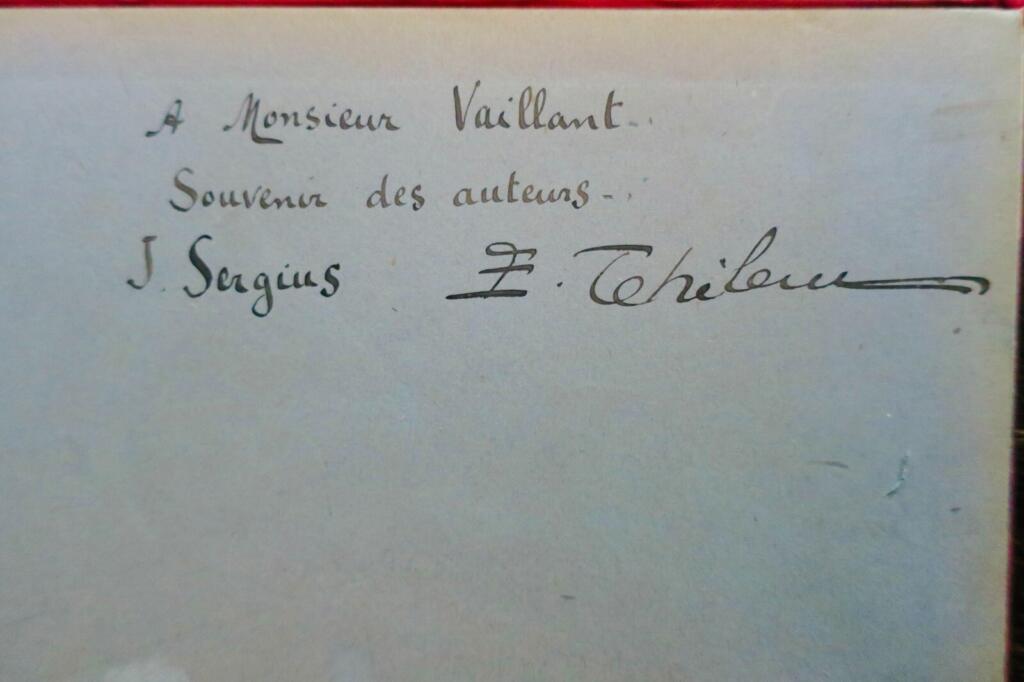 A Monsieur Vaillant
Souvenir des auteurs
J. Sergius